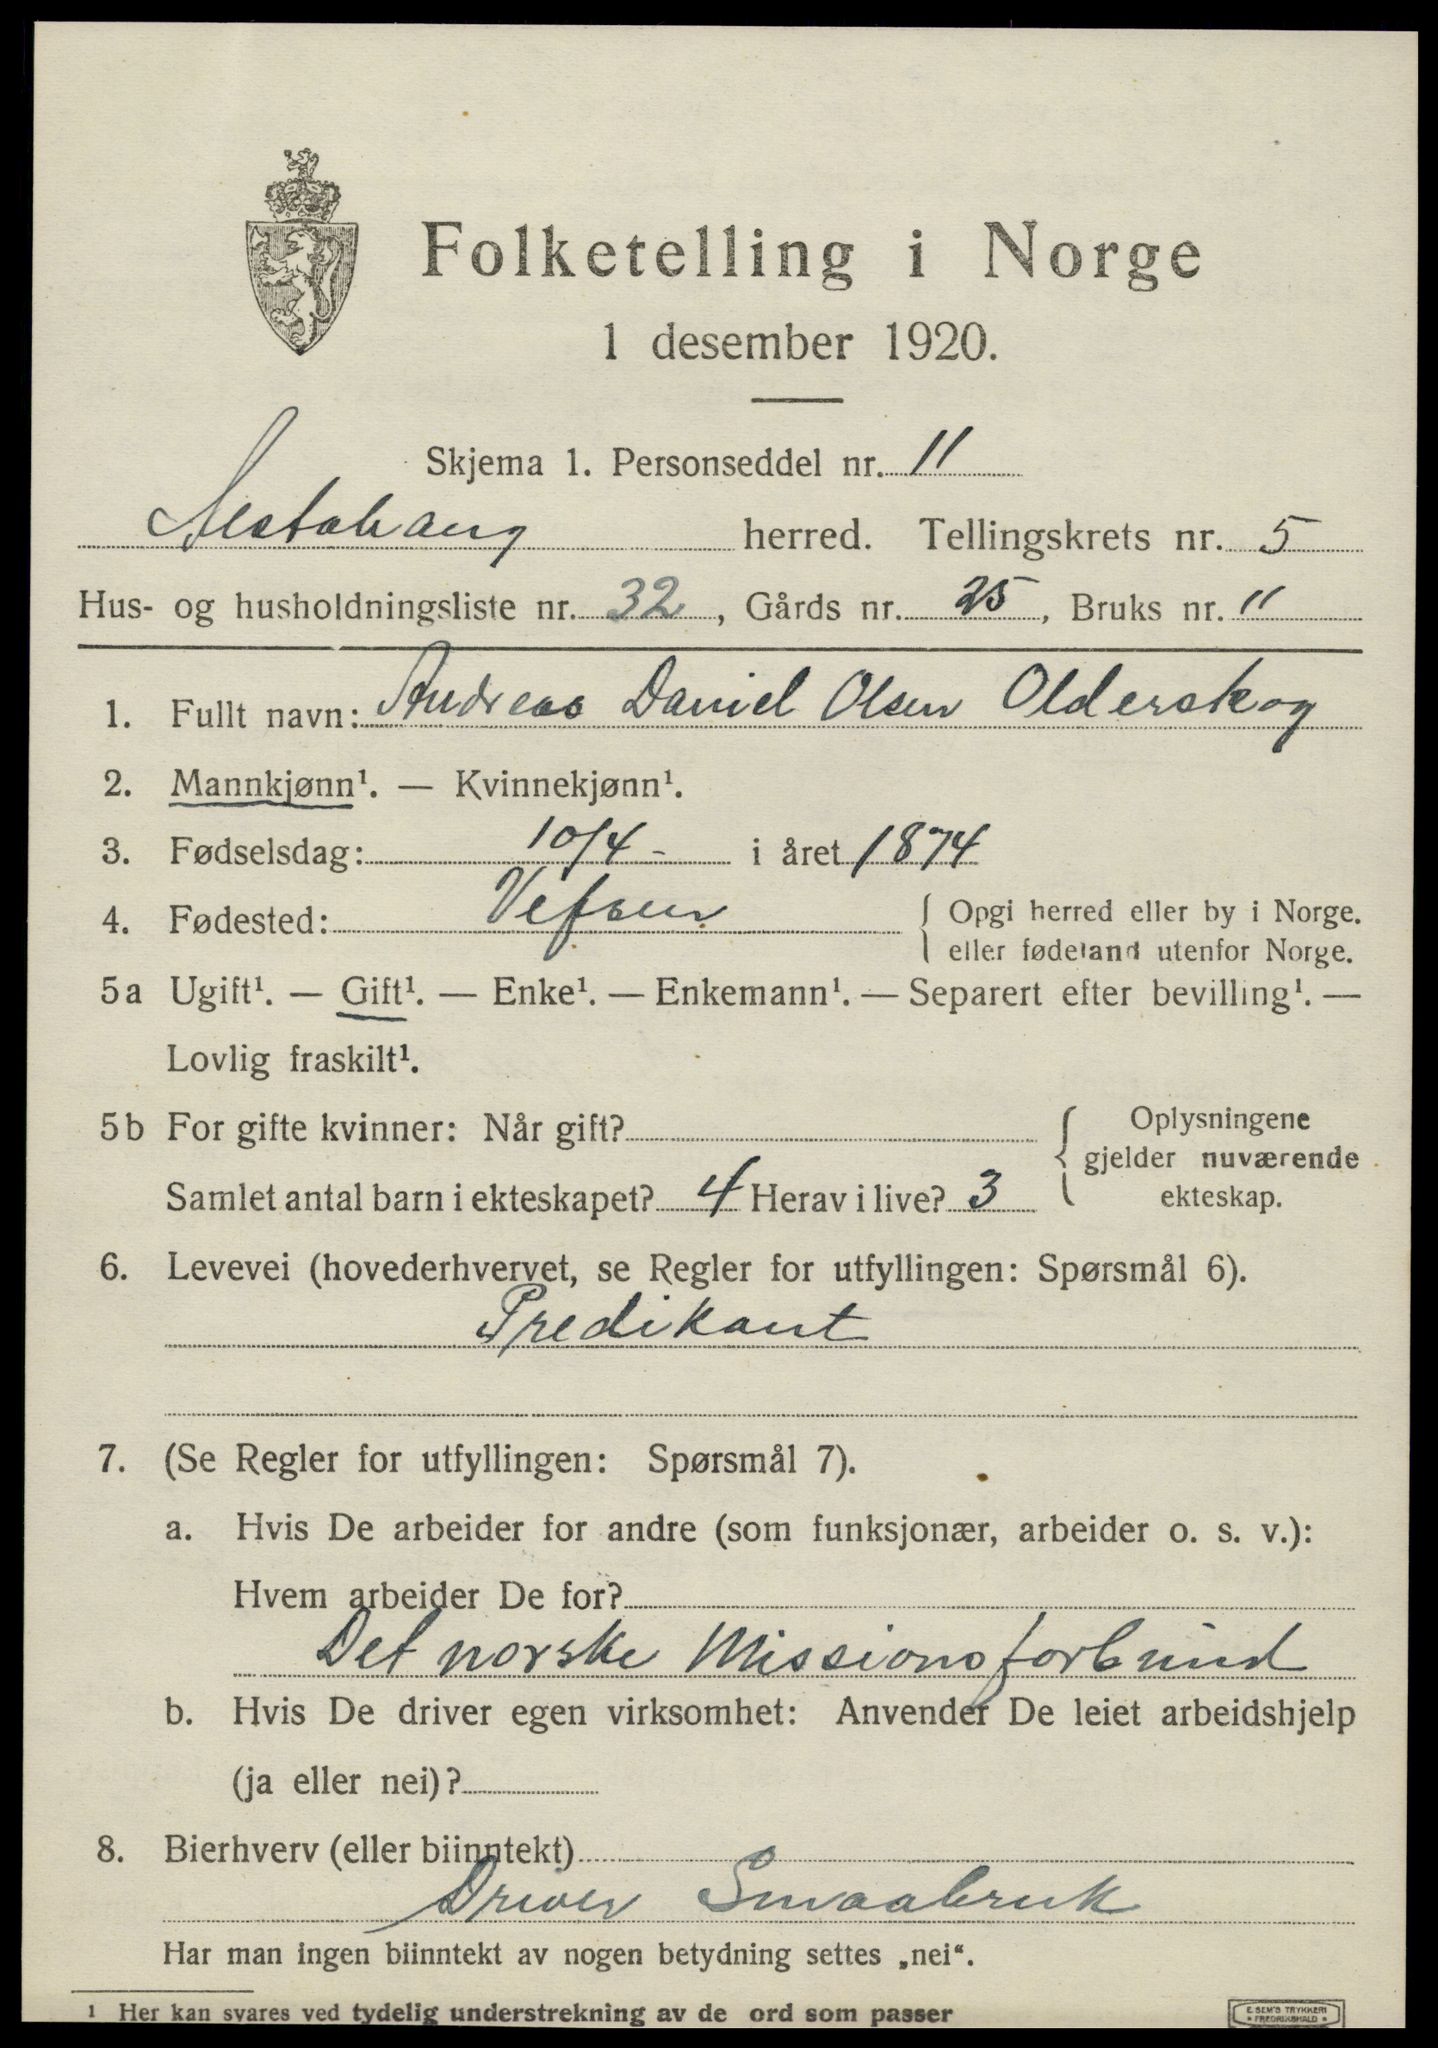 Folketelling i Norge
1 desember 1920.
Skjema 1. Personseddel nr. 11
Alstahaug herred. Tellingskrets nr. 5
Hus- og husholdningsliste nr. 32, Gårds nr. 25, Bruks nr. 11
1. Fullt navn: Andreas Daniel Olsen Olderskog
2. Mannkjønn¹. — Kvinnekjønn¹.
3. Fødselsdag: 10/4 - i året 1874
4. Fødested: Vefsen { Opgi herred eller by i Norge.
eller fødeland utenfor Norge.
5a Ugift¹. — Gift¹. — Enke¹. — Enkemann¹. — Separert efter bevilling¹. —
Lovlig fraskilt¹.
5b For gifte kvinner: Når gift?
Samlet antal barn i ekteskapet? 4 Herav i live? 3
{ Oplysningene
gjelder nuværende
ekteskap.
6. Levevei (hovederhvervet, se Regler for utfyllingen: Spørsmål 6).
Predikant
7. (Se Regler for utfyllingen: Spørsmål 7).
a. Hvis De arbeider for andre (som funksjonær, arbeider o. s. v.):
Hvem arbeider De for?
Det norske Missionsforbund
b. Hvis De driver egen virksomhet: Anvender De leiet arbeidshjelp
(ja eller nei)?
8. Bierhverv (eller biinntekt)
Driver Smaabruk
Har man ingen biinntekt av nogen betydning settes „nei“.
1 Her kan svares ved tydelig understrekning av de ord som passer
E. SEM'S TRYKKERI
* FREDRIKSHALD *